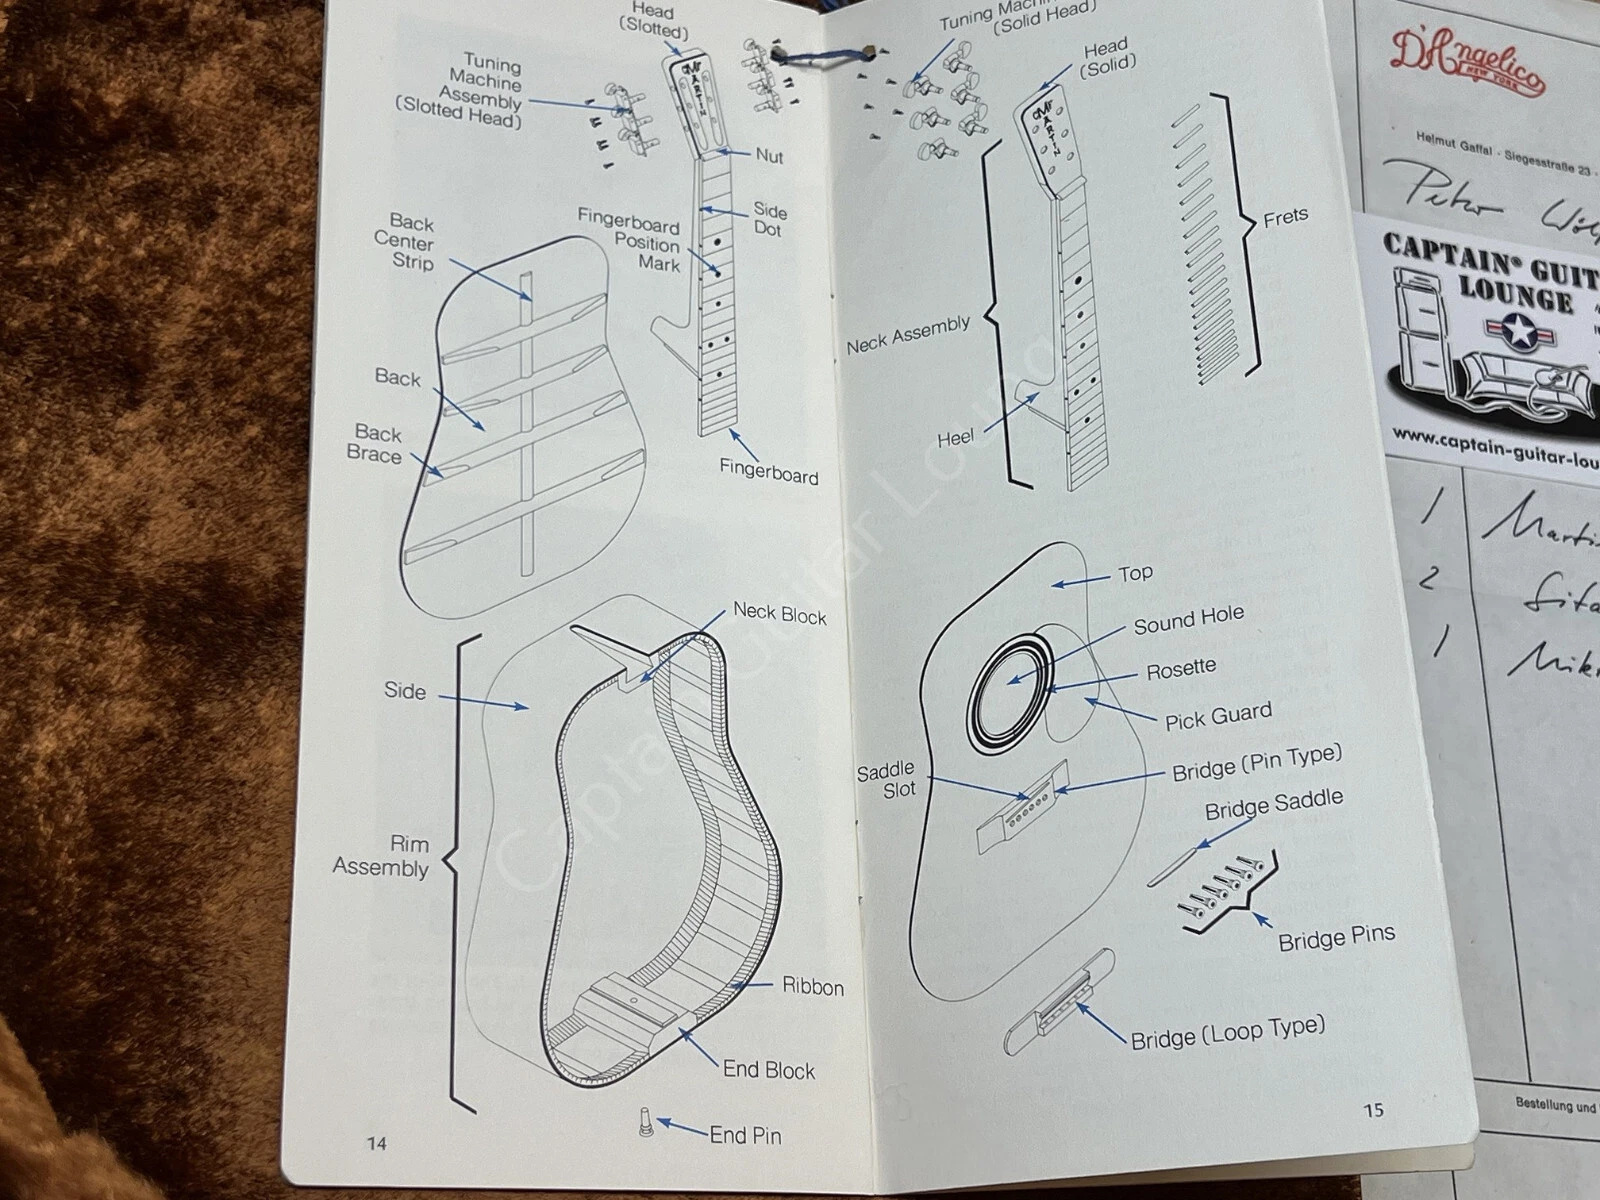 Head
(Slotted)
Tuning
Machine
Assembly
(Slotted Head)
MARTIN
Nut
Side
Dot
Fingerboard
Position
Mark
Back
Center
Strip
Back
Back
Brace
Fingerboard
Neck Block
Side
Rim
Assembly
Ribbon
End Block
End Pin
14
Tuning
(Solid Head)
Head
(Solid)
MARTIN
Frets
Neck Assembly
Heel
Top
Sound Hole
Rosette
Pick Guard
Saddle
Slot
Bridge (Pin Type)
Bridge Saddle
Bridge Pins
Bridge (Loop Type)
15
Captain Guitar Lounge
D'Angelico
NEW YORK
Helmut Gaffal - Siegesstraße 23 -
Peter
CAPTAIN® GUIT
LOUNGE
www.captain-guitar-lou
1
2
1
Bestellung und